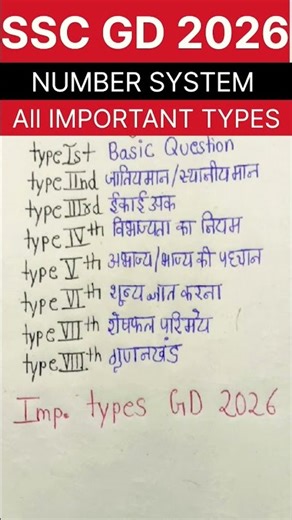 SSC GD 2026
NUMBER SYSTEM
All IMPORTANT TYPES
type Ist Basic Question
type IInd जातियमान/स्थानीयमान
type IIIrd ईकाई अंक
type IVth विभाज्यता का नियम
type Vth अभाज्य/भाज्य की पहचान
type VIth शून्य ज्ञात करना
type VIIth शेषफल परिमेय
type VIIIth गुणनखंड
Imp. types GD 2026